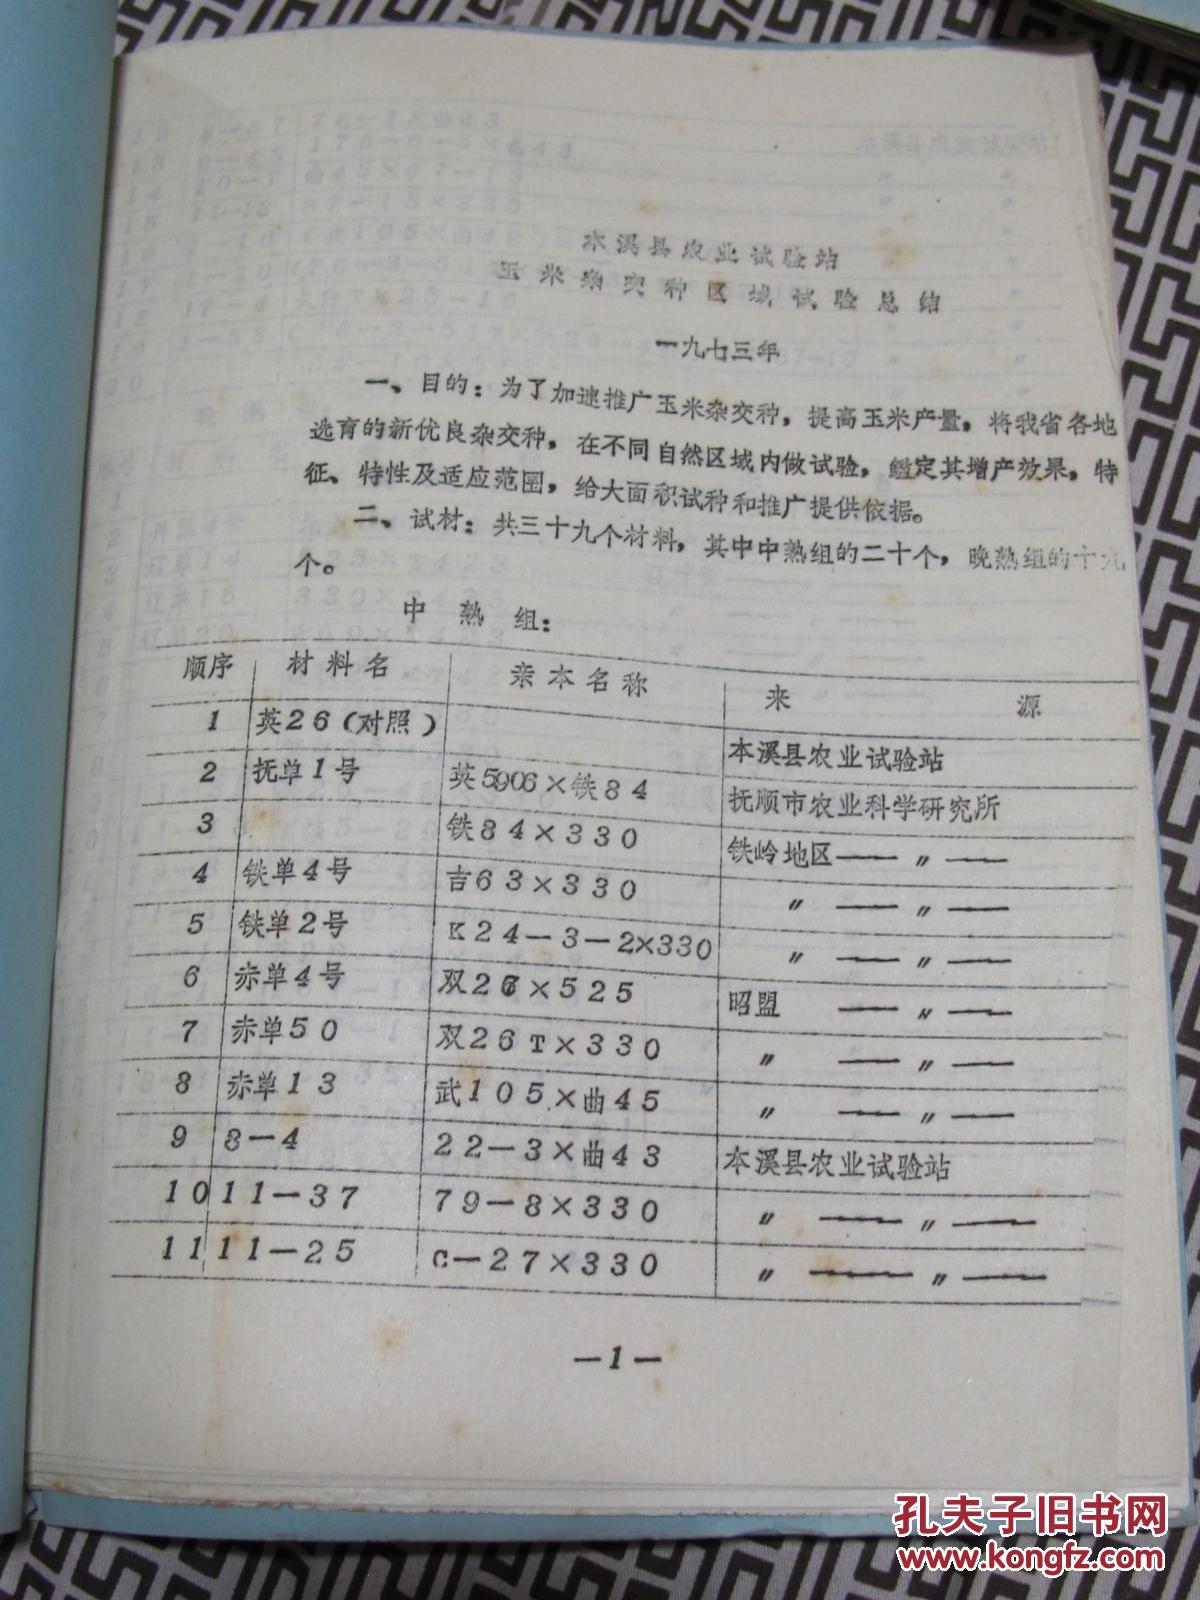 本溪县农业试验站
玉米杂交种区域试验总结
一九七三年
一、目的：为了加速推广玉米杂交种，提高玉米产量，将我省各地
选育的新优良杂交种，在不同自然区域内做试验，鑑定其增产效果，特
征、特性及适应范围，给大面积试种和推广提供依据。
二、试材：共三十九个材料，其中中熟组的二十个，晚熟组的十九
个。
中 熟 组：
顺序 材料名 亲本名称 来 源
1 英26（对照） 本溪县农业试验站
2 抚单1号 英5906×铁84 抚顺市农业科学研究所
3 铁84×330 铁岭地区——〃——
4 铁单4号 吉63×330 〃 ——〃——
5 铁单2号 K24—3—2×330 〃 ——〃——
6 赤单4号 双26×525 昭盟 ——〃——
7 赤单50 双26T×330 〃 ——〃——
8 赤单13 武105×曲45 〃 ——〃——
9 8—4 22—3×曲43 本溪县农业试验站
10 11—37 79—8×330 〃 ——〃——
11 11—25 C—27×330 〃 ——〃——
—1—
孔夫子旧书网
www.kongfz.com